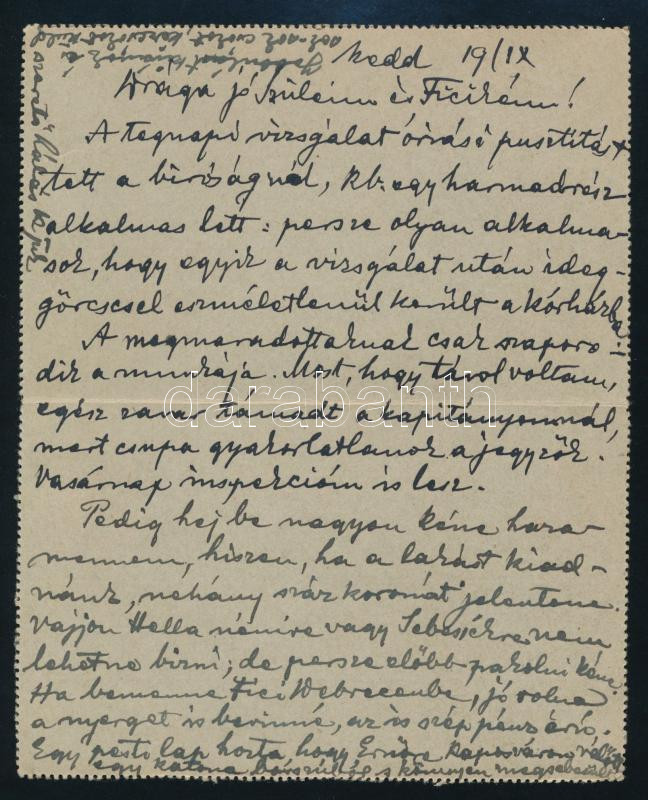 kedd 19/IX
Draga jó Szüleim és Ficikém!
A tegnapi vizsgálat óriási pusztitás+
tett a biróságnál, kb. egy harmadrész
alkalmas lett: persze olyan alkalma-
sok, hogy egyik a vizsgálat után ideg-
görcscsel eszméletlenül került a kórházba.
A megmaradottaknak csak szaporo-
dik a munkája. Most, hogy távol voltam,
egész zavar támadt a kapitányomnál,
mert csupa gyakorlatlanok a jegyzők.
Vasárnap inspekcióm is lesz.
Pedig hej be nagyon kéne haza-
mennem, hiszen, ha a lakást kiad-
nánk, néhány száz koronát jelentene.
Vajjon Hella nénire vagy Sebesiékre nem
lehetne bizni; de persze előbb pakolni kéne.
Ha bemenne Fici Debreczenbe, jó volna
a nyerget is bevinné, az is szép pénzt érő.
Egy pesti lap hozta, hogy Ernőre Kaposváron
egy katona
szerető
sok-sok csókot, kézcsókot küld
darabanth